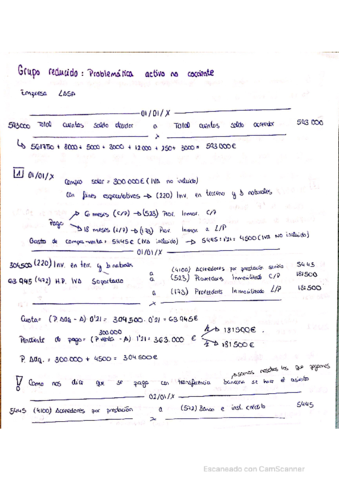 Grupo reducido: Problemática activo no corriente
Empresa LASA
01/01/X
523000 Total cuentas saldo deudor a Total cuentas saldo acreedor 523.000
1 01/01/X
Compro solar = 300.000€ (IVA no incluido)
Con fines especulativos → (220) Inv. en terreno y b naturales
Pago
6 meses (C/P) → (523) Prov. Inmov. C/P
18 meses (L/P) → (173) Prov. Inmov a L/P
Gasto de compraventa = 5445€ (IVA incluido) → 5445÷1'21 = 4500 (IVA no incluido)
01/01/X
304500 (220) Inv. en terr. y b naturales
a (4100) Acreedores por prestación servicio 5445
63.945 (472) H.P. IVA Soportado a (523) Proveedores Inmovilizado C/P 181.500
a (173) Proveedores Inmovilizado L/P 181.500
x
Cuota = (P. Adq - A) 0'21 = 304.500 · 0'21 = 63.945€
300.000
Pendiente de pago = (P venta - A) 1'21 = 363.000€
181.500€
181.500€
P. Adq. = 300.000 + 4500 = 304.500€
somos nosotros los que pagamos
! Como nos dice que se paga con transferencia bancaria se hace el asiento
01/01/X
5445 (4100) Acreedores por prestación a (572) Banco e inst. crédito 5445
x
Escaneado con CamScanner